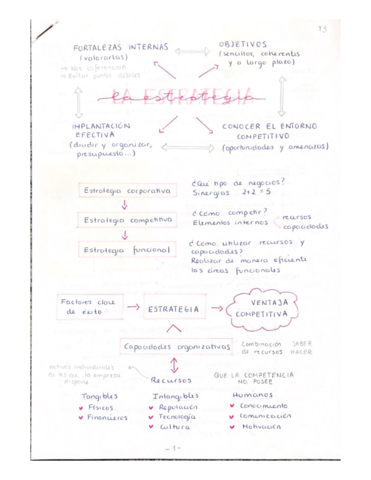 FORTALEZAS INTERNAS
(valorarlas)
→ Nos diferencian
→ Evitar puntos débiles
OBJETIVOS
(sencillos, coherentes
y a largo plazo)
LA ESTRATEGIA
la estrategia
IMPLANTACIÓN
EFECTIVA
(dividir y organizar,
presupuesto...)
CONOCER EL ENTORNO
COMPETITIVO
(oportunidades y amenazas)
Estrategia corporativa
¿Qué tipo de negocios?
Sinergias 2+2 = 5
Estrategia competitiva
¿Cómo competir?
Elementos internos
recursos
capacidades
Estrategia funcional
¿Cómo utilizar recursos y
capacidades?
Realizar de manera eficiente
las áreas funcionales
Factores clave
de éxito
ESTRATEGIA
VENTAJA
COMPETITIVA
Capacidades organizativas
Combinación
de recursos
SABER
HACER
activos individuales
de los que la empresa
dispone
Recursos
QUE LA COMPETENCIA
NO POSEE
Tangibles
Físicos
Financieros
Intangibles
Reputación
Tecnología
Cultura
Humanos
Conocimiento
Comunicación
Motivación
- 1 -